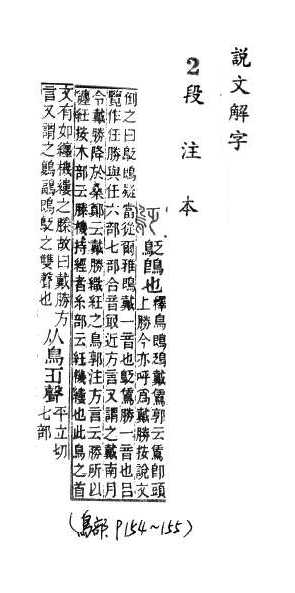 說文解字
2 段注本
鴔鵖也
釋鳥鵖鴔戴鵀郭云鵀卽頭
上勝今亦呼爲戴勝按說文
倒之曰鴔鵖疑當從爾雅鵖戴一音也鴔鵀勝一音也呂
覽作任勝與任六部七部合音冣近方言又謂之戴南月
令戴勝降於桑鄭云戴勝織紝之鳥郭注方言云勝所以
纏紝按木部云榺機持經者糸部云紝機縷也此鳥之首
文有如纏機縷之榺故曰戴勝方
言又謂之鶝鵖鴔之雙聲也
从鳥乏聲
平立切
七部
(鳥部 P154~155)